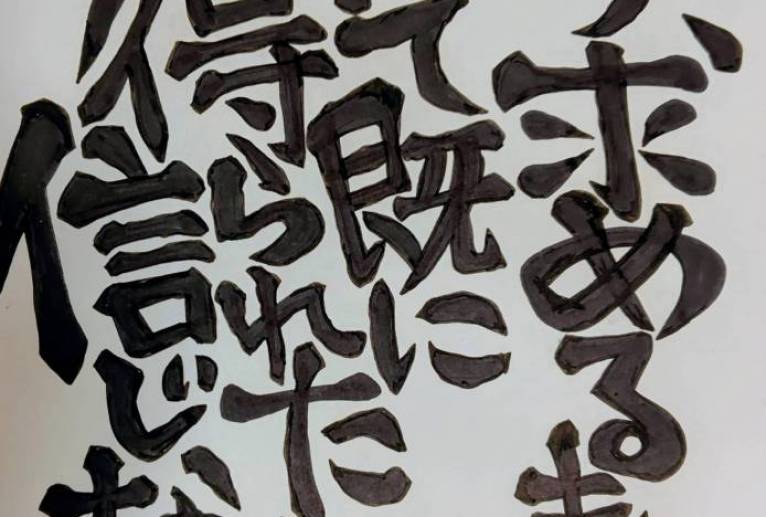 求める
て既に
得られた
信じ